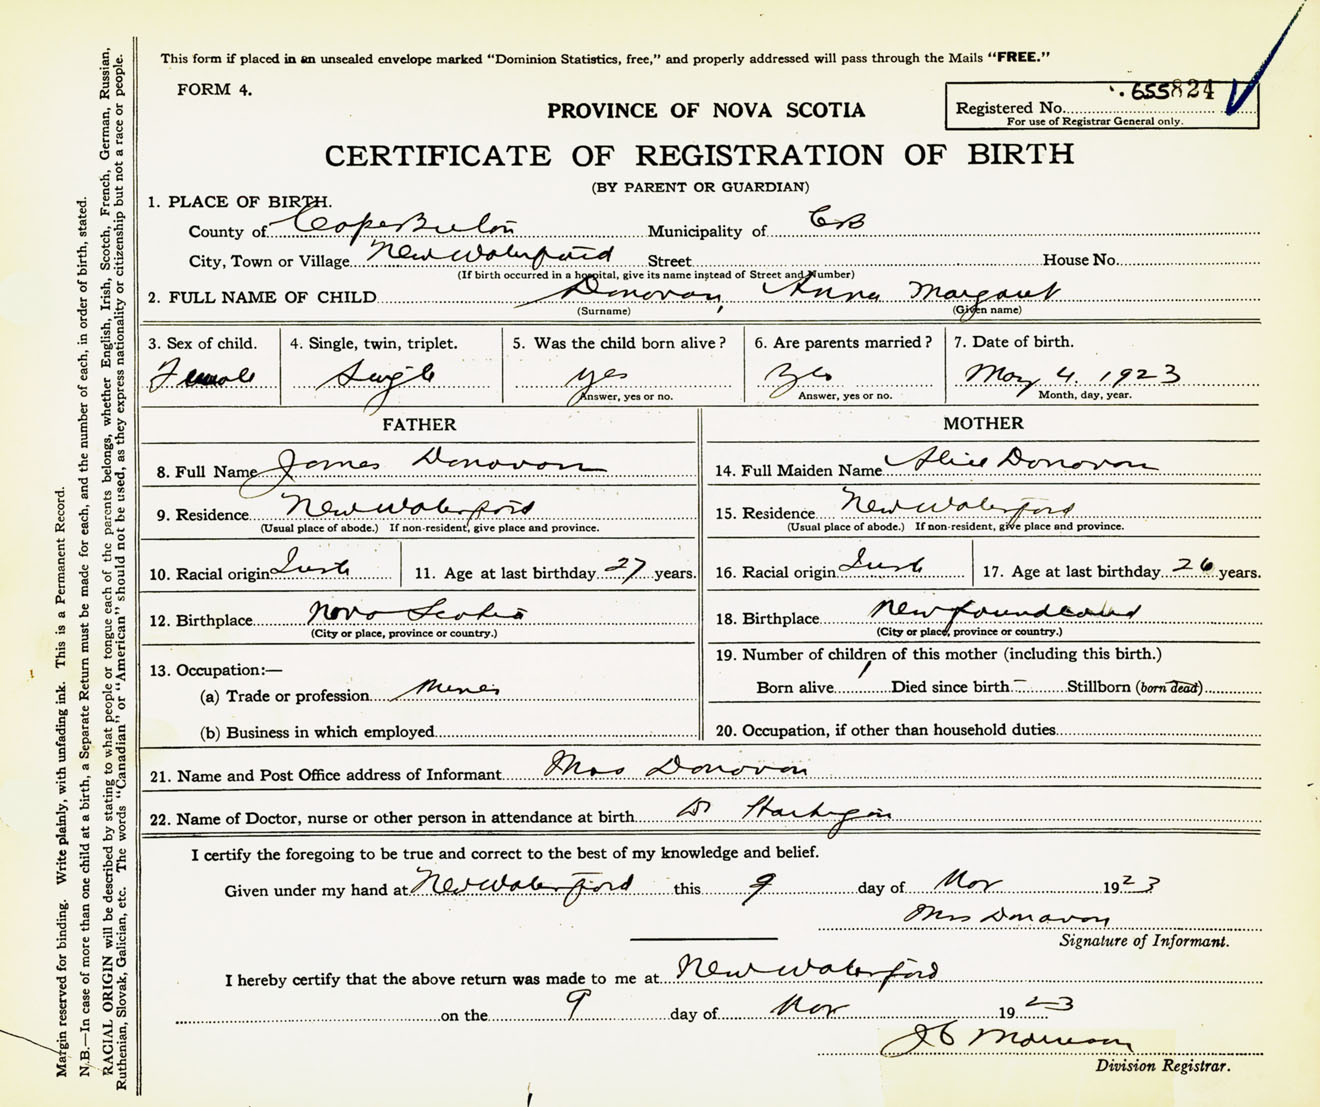 This form if placed in an unsealed envelope marked "Dominion Statistics, free," and properly addressed will pass through the Mails "FREE."
FORM 4.
655824
Registered No.
For use of Registrar General only.
PROVINCE OF NOVA SCOTIA
CERTIFICATE OF REGISTRATION OF BIRTH
(BY PARENT OR GUARDIAN)
1. PLACE OF BIRTH.
County of Cape Breton Municipality of CB
City, Town or Village New Waterford Street House No.
(If birth occurred in a hospital, give its name instead of Street and Number)
2. FULL NAME OF CHILD Donovan, Anna Margaret
(Surname) (Given name)
3. Sex of child. 4. Single, twin, triplet. 5. Was the child born alive? 6. Are parents married? 7. Date of birth.
Female Single yes Yes May 4. 1923
Answer, yes or no. Answer, yes or no. Month, day, year.
FATHER MOTHER
8. Full Name James Donovan 14. Full Maiden Name Alice Donovan
9. Residence New Waterford 15. Residence New Waterford
(Usual place of abode.) If non-resident, give place and province. (Usual place of abode.) If non-resident, give place and province.
10. Racial origin Irish 11. Age at last birthday 27 years. 16. Racial origin Irish 17. Age at last birthday 26 years.
12. Birthplace Nova Scotia 18. Birthplace Newfoundland
(City or place, province or country.) (City or place, province or country.)
13. Occupation:— 19. Number of children of this mother (including this birth.)
(a) Trade or profession Miner Born alive 1 Died since birth – Stillborn (born dead)
(b) Business in which employed 20. Occupation, if other than household duties
21. Name and Post Office address of Informant Mrs Donovan
22. Name of Doctor, nurse or other person in attendance at birth Dr Hartigan
I certify the foregoing to be true and correct to the best of my knowledge and belief.
Given under my hand at New Waterford this 9 day of Nov 1923
Mrs Donavon
Signature of Informant.
I hereby certify that the above return was made to me at New Waterford
on the 9 day of Nov 1923
J C Morrison
Division Registrar.
Margin reserved for binding. Write plainly, with unfading ink. This is a Permanent Record.
N.B.—In case of more than one child at a birth, a Separate Return must be made for each, and the number of each, in order of birth, stated.
RACIAL ORIGIN will be described by stating to what people or tongue each of the parents belongs, whether English, Irish, Scotch, French, German, Russian,
Ruthenian, Slovak, Galician, etc. The words "Canadian" or "American" should not be used, as they express nationality or citizenship but not a race or people.